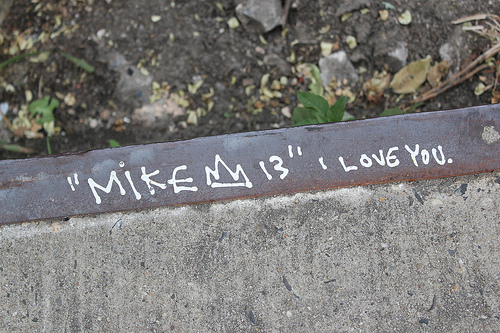 "MiKE 13" I LOVE YOU.